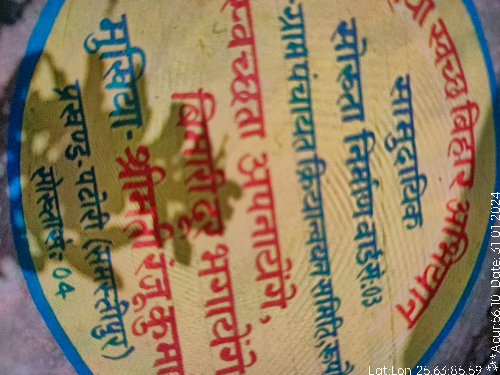 स्वच्छ बिहार अभियान
सामुदायिक
सोख्ता निर्माण वार्ड सं:03
ग्राम पंचायत क्रियान्वयन समिति,
स्वच्छता अपनायेंगे,
बिमारी दूर भगायेंगे
मुखिया- श्रीमती रंजू कुमा
प्रखण्ड-पटोरी (समस्तीपुर)
सोख्ता सं: 04
Lat:Lon 25.63:85.59
Acur:66.10 Date:31 01 2024